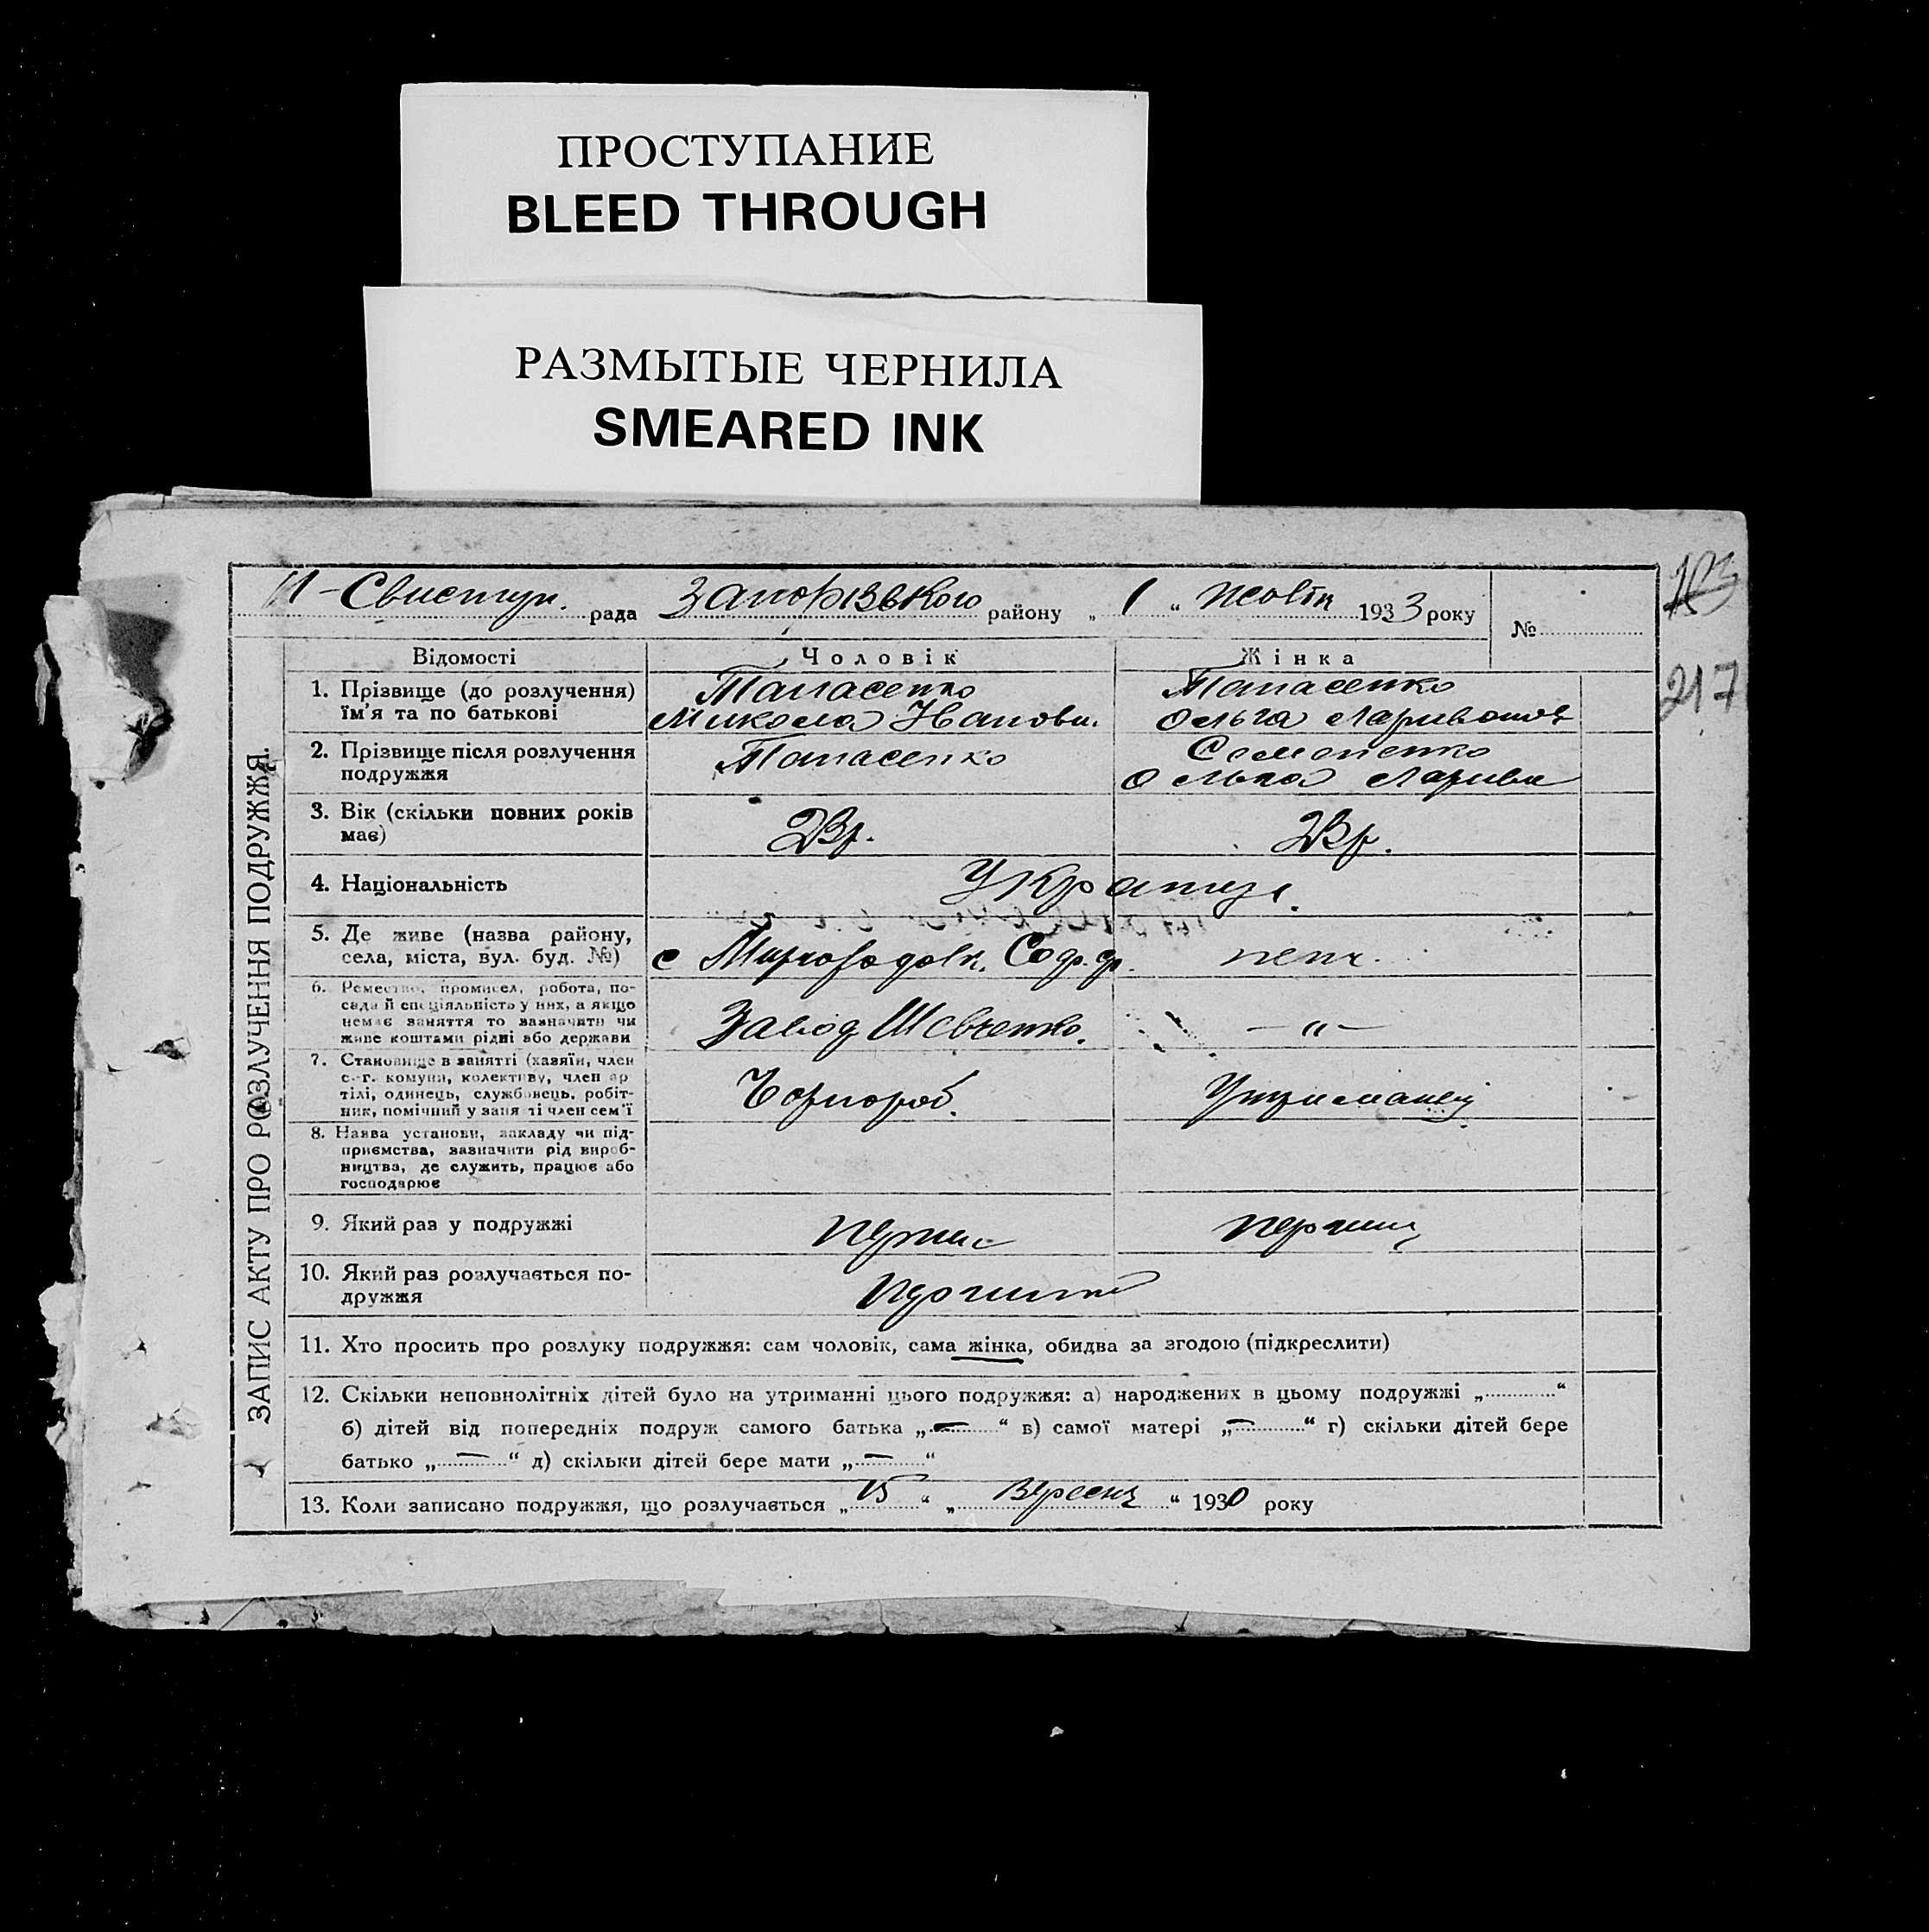 ПРОСТУПАНИЕ
BLEED THROUGH
РАЗМЫТЫЕ ЧЕРНИЛА
SMEARED INK
Н-Свистун. рада Запорізького району „ 1 “ жовтн 1933 року №
217
Відомості Чоловік Жінка
ЗАПИС АКТУ ПРО РОЗЛУЧЕННЯ ПОДРУЖЖЯ.
1. Прізвище (до розлучення) Панасенко Панасенко
їм'я та по батькові Микола Иванови. Ольга
2. Прізвище після розлучення Панасенко Семененко
подружжя Ольга
3. Вік (скільки повних років 23р. 23р.
має)
4. Національність Українці.
5. Де живе (назва району,
села, міста, вул. буд. №) с
6. Ремество, промисел, робота, по-
сада й спеціяльність у них, а якщо Завод Шевченко. — „ —
немає заняття то зазначити чи
живе коштами рідні або держави
7. Становище в занятті (хазяїн, член
с.-г. комуни, колективу, член ар Чорнороб. Утриманец
тілі, одинець, службовець, робіт-
ник, помічний у заня ті член сем'ї
8. Назва установи, закладу чи під-
приємства, зазначити рід вироб-
ництва, де служить, працює або
господарює
9. Який раз у подружжі
10. Який раз розлучається по-
дружжя
11. Хто просить про розлуку подружжя: сам чоловік, сама жінка, обидва за згодою (підкреслити)
12. Скільки неповнолітніх дітей було на утриманні цього подружжя: а) народжених в цьому подружжі „ “
б) дітей від попередніх подруж самого батька „ — “ в) самої матері „ — “ г) скільки дітей бере
батько „ — “ д) скільки дітей бере мати „ — “
13. Коли записано подружжя, що розлучається „ 15 “ „ Вересня “ 1930 року